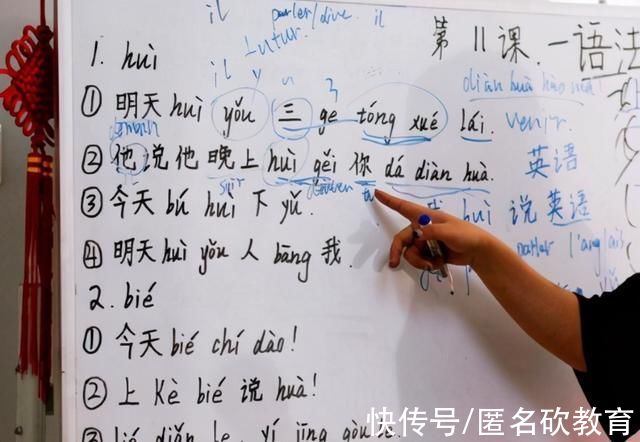 il parler/dire. il
futur.
第 11 课. 一 语法
1. huì
il y
diàn huà hào mǎ
① 明天 huì yǒu 三 ge tóng xué lái. venir
② 他说他晚上 huì gěi 你 dá diàn huà. 英语
soir tu
③ 今天 bú huì 下 yǔ. huì 说 英语
parler l'anglais
④ 明天 huì yǒu 人 bāng 我.
2. bié
① 今天 bié chí dào!
② 上 Kè bié 说 huà!
③ diǎn le, yí jīng
快传号/匿名砍教育